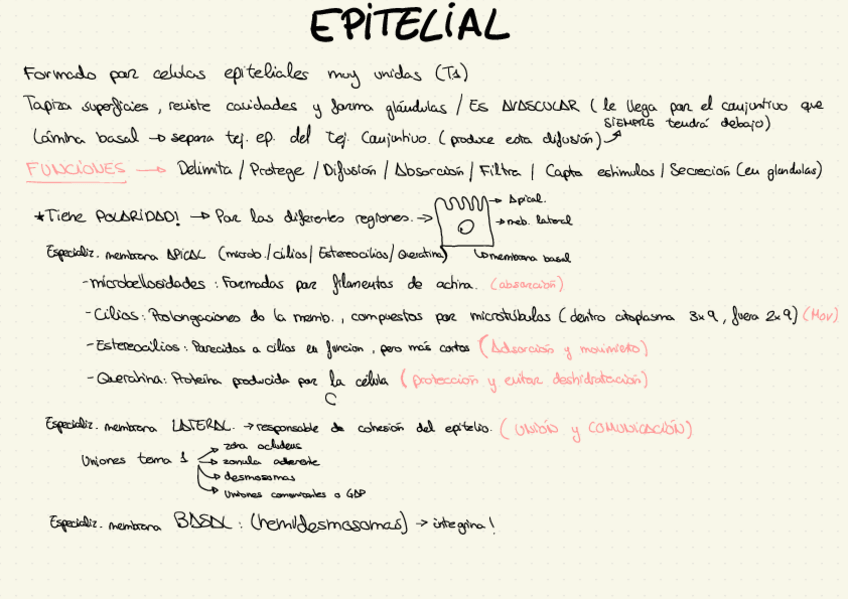 EPITELIAL
Formado por celulas epiteliales muy unidas (T1)
Tapiza superficies, reviste cavidades y forma glándulas / Es AVASCULAR (le llega por el conjuntivo que
SIEMPRE tendrá debajo)
Lámina basal → separa tej. ep. del tej. Conjuntivo. (produce esta difusión)
FUNCIONES → Delimita / Protege / Difusión / Absorción / Filtra / Capta estimulos / Secreción (en glandulas)
* Tiene POLARIDAD! → Por las diferentes regiones. →
→ Apical.
→ meb. lateral
→ membrana basal
Especializ. membrana APICAL (microb. / cilios / Estereocilios / Queratina)
- microbellosidades : Formadas por filamentos de actina. (absorción)
- Cilios : Prolongaciones de la memb., compuestos por microtúbulos (dentro citoplasma 3x9, fuera 2x9) (Mov)
- Estereocilios : Parecidos a cilios en funcion, pero más cortos (Adsorción y movimieto)
- Queratina : Proteína producida por la célula (protección y evitar deshidratación)
Especializ. membrana LATERAL. → responsable de cohesión del epitelio. (UNIÓN y COMUNICACIÓN)
Uniones tema 1
→ zona ocludens
→ zonula aderente
→ desmosomas
→ Uniones comunicantes o GAP
Especializ. membrana BASAL : (hemidesmosomas) → integrina!